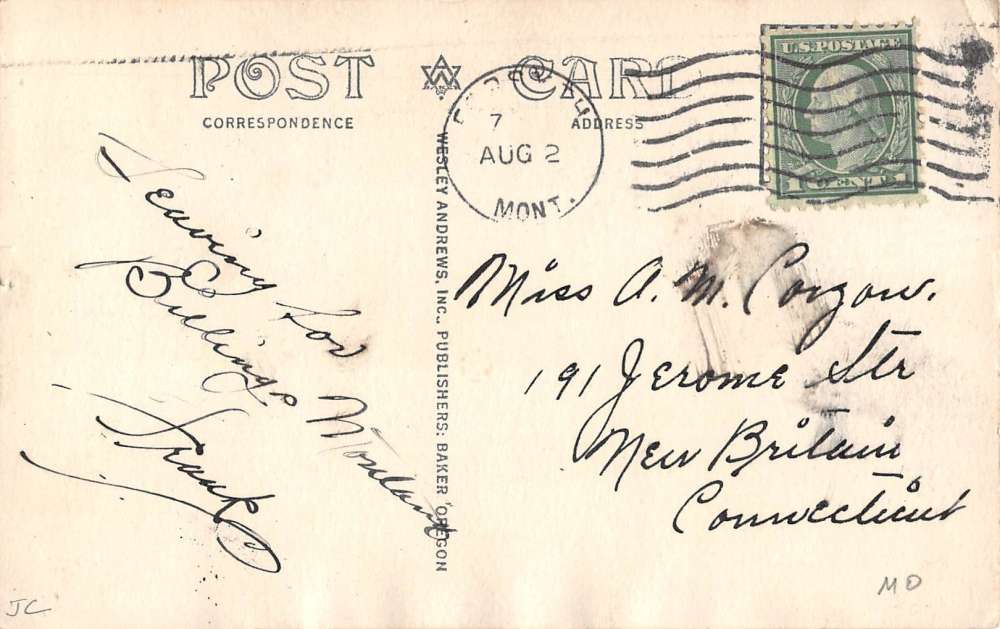 POST CARD
CORRESPONDENCE
ADDRESS
U.S. POSTAGE
1 CENT 1
7
AUG 2
MONT.
WESLEY ANDREWS, INC., PUBLISHERS: BAKER OREGON
Leaving for
Billings Montana
Frank
Miss A. M.
191 Jerome Str
New Britain
Connecticut
JC
MO